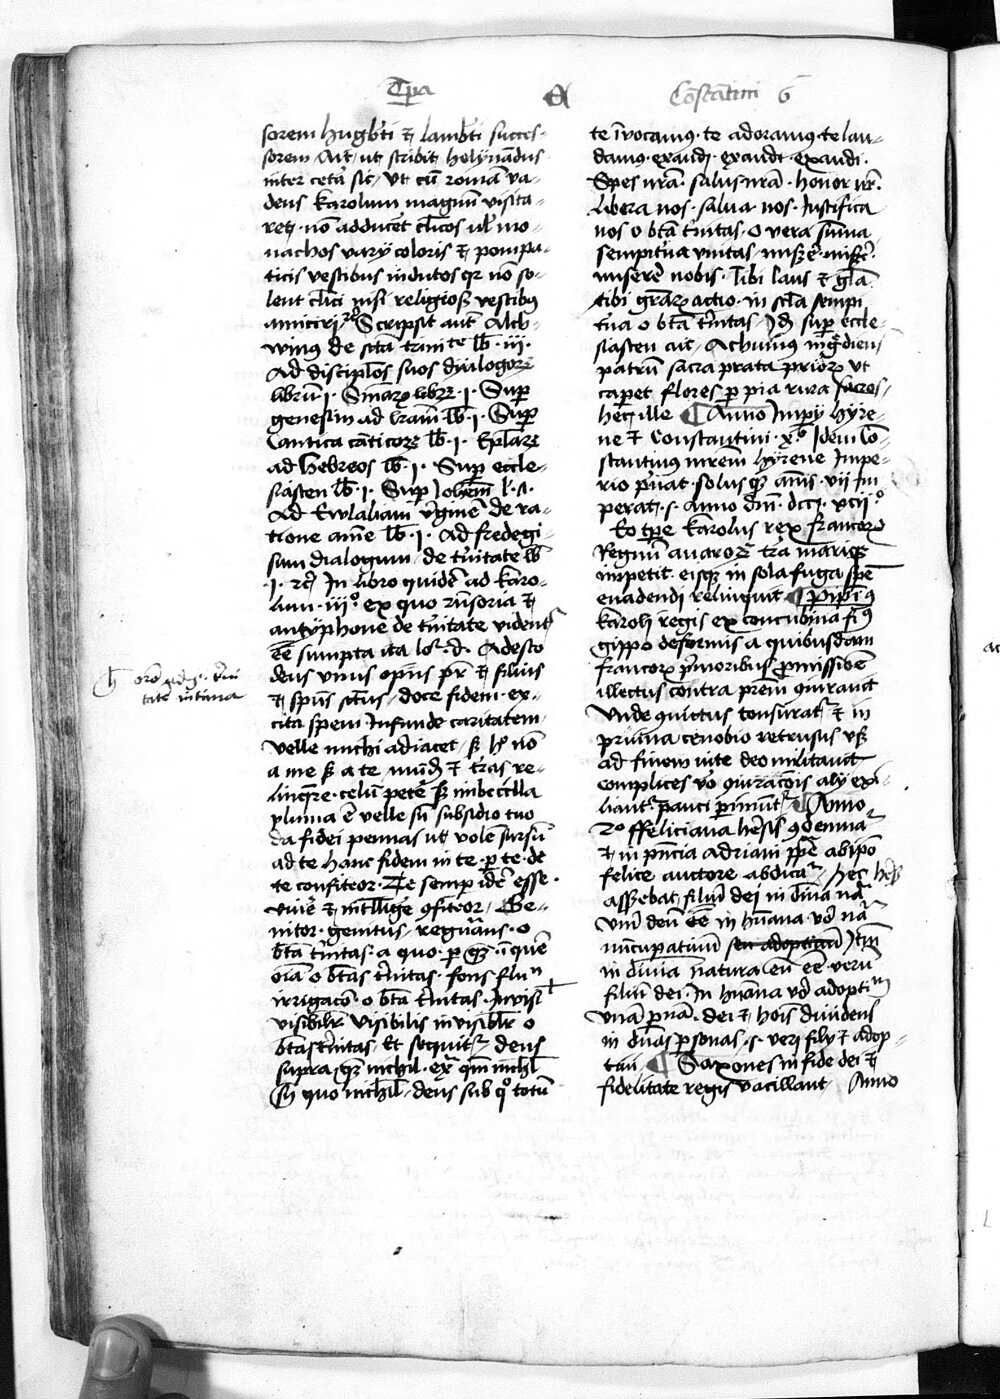 Tpa A Costatini 6
sorem hugbti et lambti succes-
sorem Ait ut scribit helynadus
inter cetera sic / ut cu roma va-
dens karolum magnum visita-
ret non adducet clicos vl mo-
nachos vary coloris et pompa-
ticis vestibus indutos qr no so-
lent clici nisi religiosis vestibus
amiciri Scripsit aut Alch-
winus de sca trinite lib iii
Ad disciplos suos dyalogorum
libru i Sup
genesim ad lram lb i Sup
Cantica canticorum lb i Eplare
ad hebreos lb i Sup eccle-
siasten lb i Sup Johem l i
Ad Ewlaliam vgine de ra-
tione anime lb i Ad fredegi-
sum dialogum de trinitate lb
i In libro quidem ad karo-
lum iii ex quo rnsoria et
antyphone de trinitate vident
ee sumpta ita lo d Adesto
deus unus opns pr et filius
et spus sctus / doce fidem ex-
cita spem Infunde caritatem
velle michi adiacet / sz no
a me sz a te mud et tras re-
linqre celum pete sz imbecilla
pluma e velle sn subsidio tuo
da fidei pennas ut vole sursu
ad te hanc fidem in te p te de
te confiteor Te semp ide esse
vive et intellige confiteor / Ge-
nitor genitus regnans o
bta trinitas a quo p que in que
oia o btas trinitas fons flun
irrigaco o bta trinitas Invisi
visibilr visibilis invisiblr o
btas trinitas Et sequit deus
supra que nichil extra quem nichl
Sn quo nichil deus sub quo totu
oro ad trini
tate intima
te invocamus te adoramus te lau-
damus exaudi exaudi exaudi
Spes nra salus nra honor nr
libera nos salva nos Iustifica
nos o bta trinitas o vera suma
sempiterna unitas misere misere
miserere nobis Tibi laus et gla
tibi graru actio in scla sempi
terna o bta trinitas / Id sup eccle-
siasten ait / Alchuinus ingrediens
patrum sacra prata priorum ut
caperet flores p pia rura sacros
hec ille Anno Impy hyre-
ne et Constantini xo Idem Co-
stantinus matrem hyrene Impe-
rio privat solusque annis vii im
perat s Anno dni dcc xcii
Eo tpe karolus rex francorum
Regnum avarorum terra marique
impetit eisque in sola fuga spem
evadendi relinquit Pipinus
karoli regis ex concubina fi
gippo deformis a quibusdam
francorum primoribus promissiben
illectus contra prem coniuravit
unde convictus tonsurat et in
prumia cenobio retrusus usque
ad finem vite deo militavit
complices vero coniuracois aly exi-
liant pauci perimunt Anno
2o ffeliciana heresis condemnat
et in pncia adriani ppe ab ipo
felice auctore abdicat hec hesis
asserebat filiu dei in divina na
veru deu ee in humana vero na
nuncupativu seu adoptivu Item
in divina natura eu ee veru
filiu dei In humana vero adoptivum
una psona dei et hois dividens
in duas psonas s veri fily et adop-
tivi Saxones in fide dei et
fidelitate regis vacillant Anno